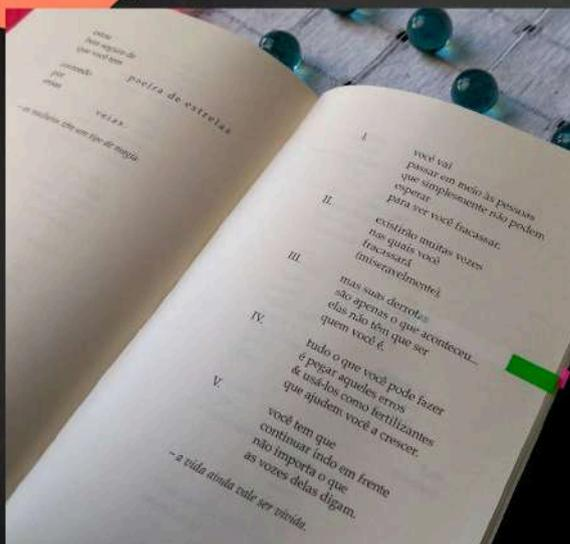 estou
bem segura de
que você tem
poeira de estrelas
correndo
por
essas
veias.
– as mulheres têm um tipo de magia.
I.
você vai
passar em meio às pessoas
que simplesmente não podem
esperar
para ver você fracassar.
II.
existirão muitas vezes
nas quais você
fracassará
(miseravelmente).
III.
mas suas derrotas
são apenas o que aconteceu...
elas não têm que ser
quem você é.
IV.
tudo o que você pode fazer
é pegar aqueles erros
& usá-los como fertilizantes
que ajudem você a crescer.
V.
você tem que
continuar indo em frente
não importa o que
as vozes delas digam.
– a vida ainda vale ser vivida.